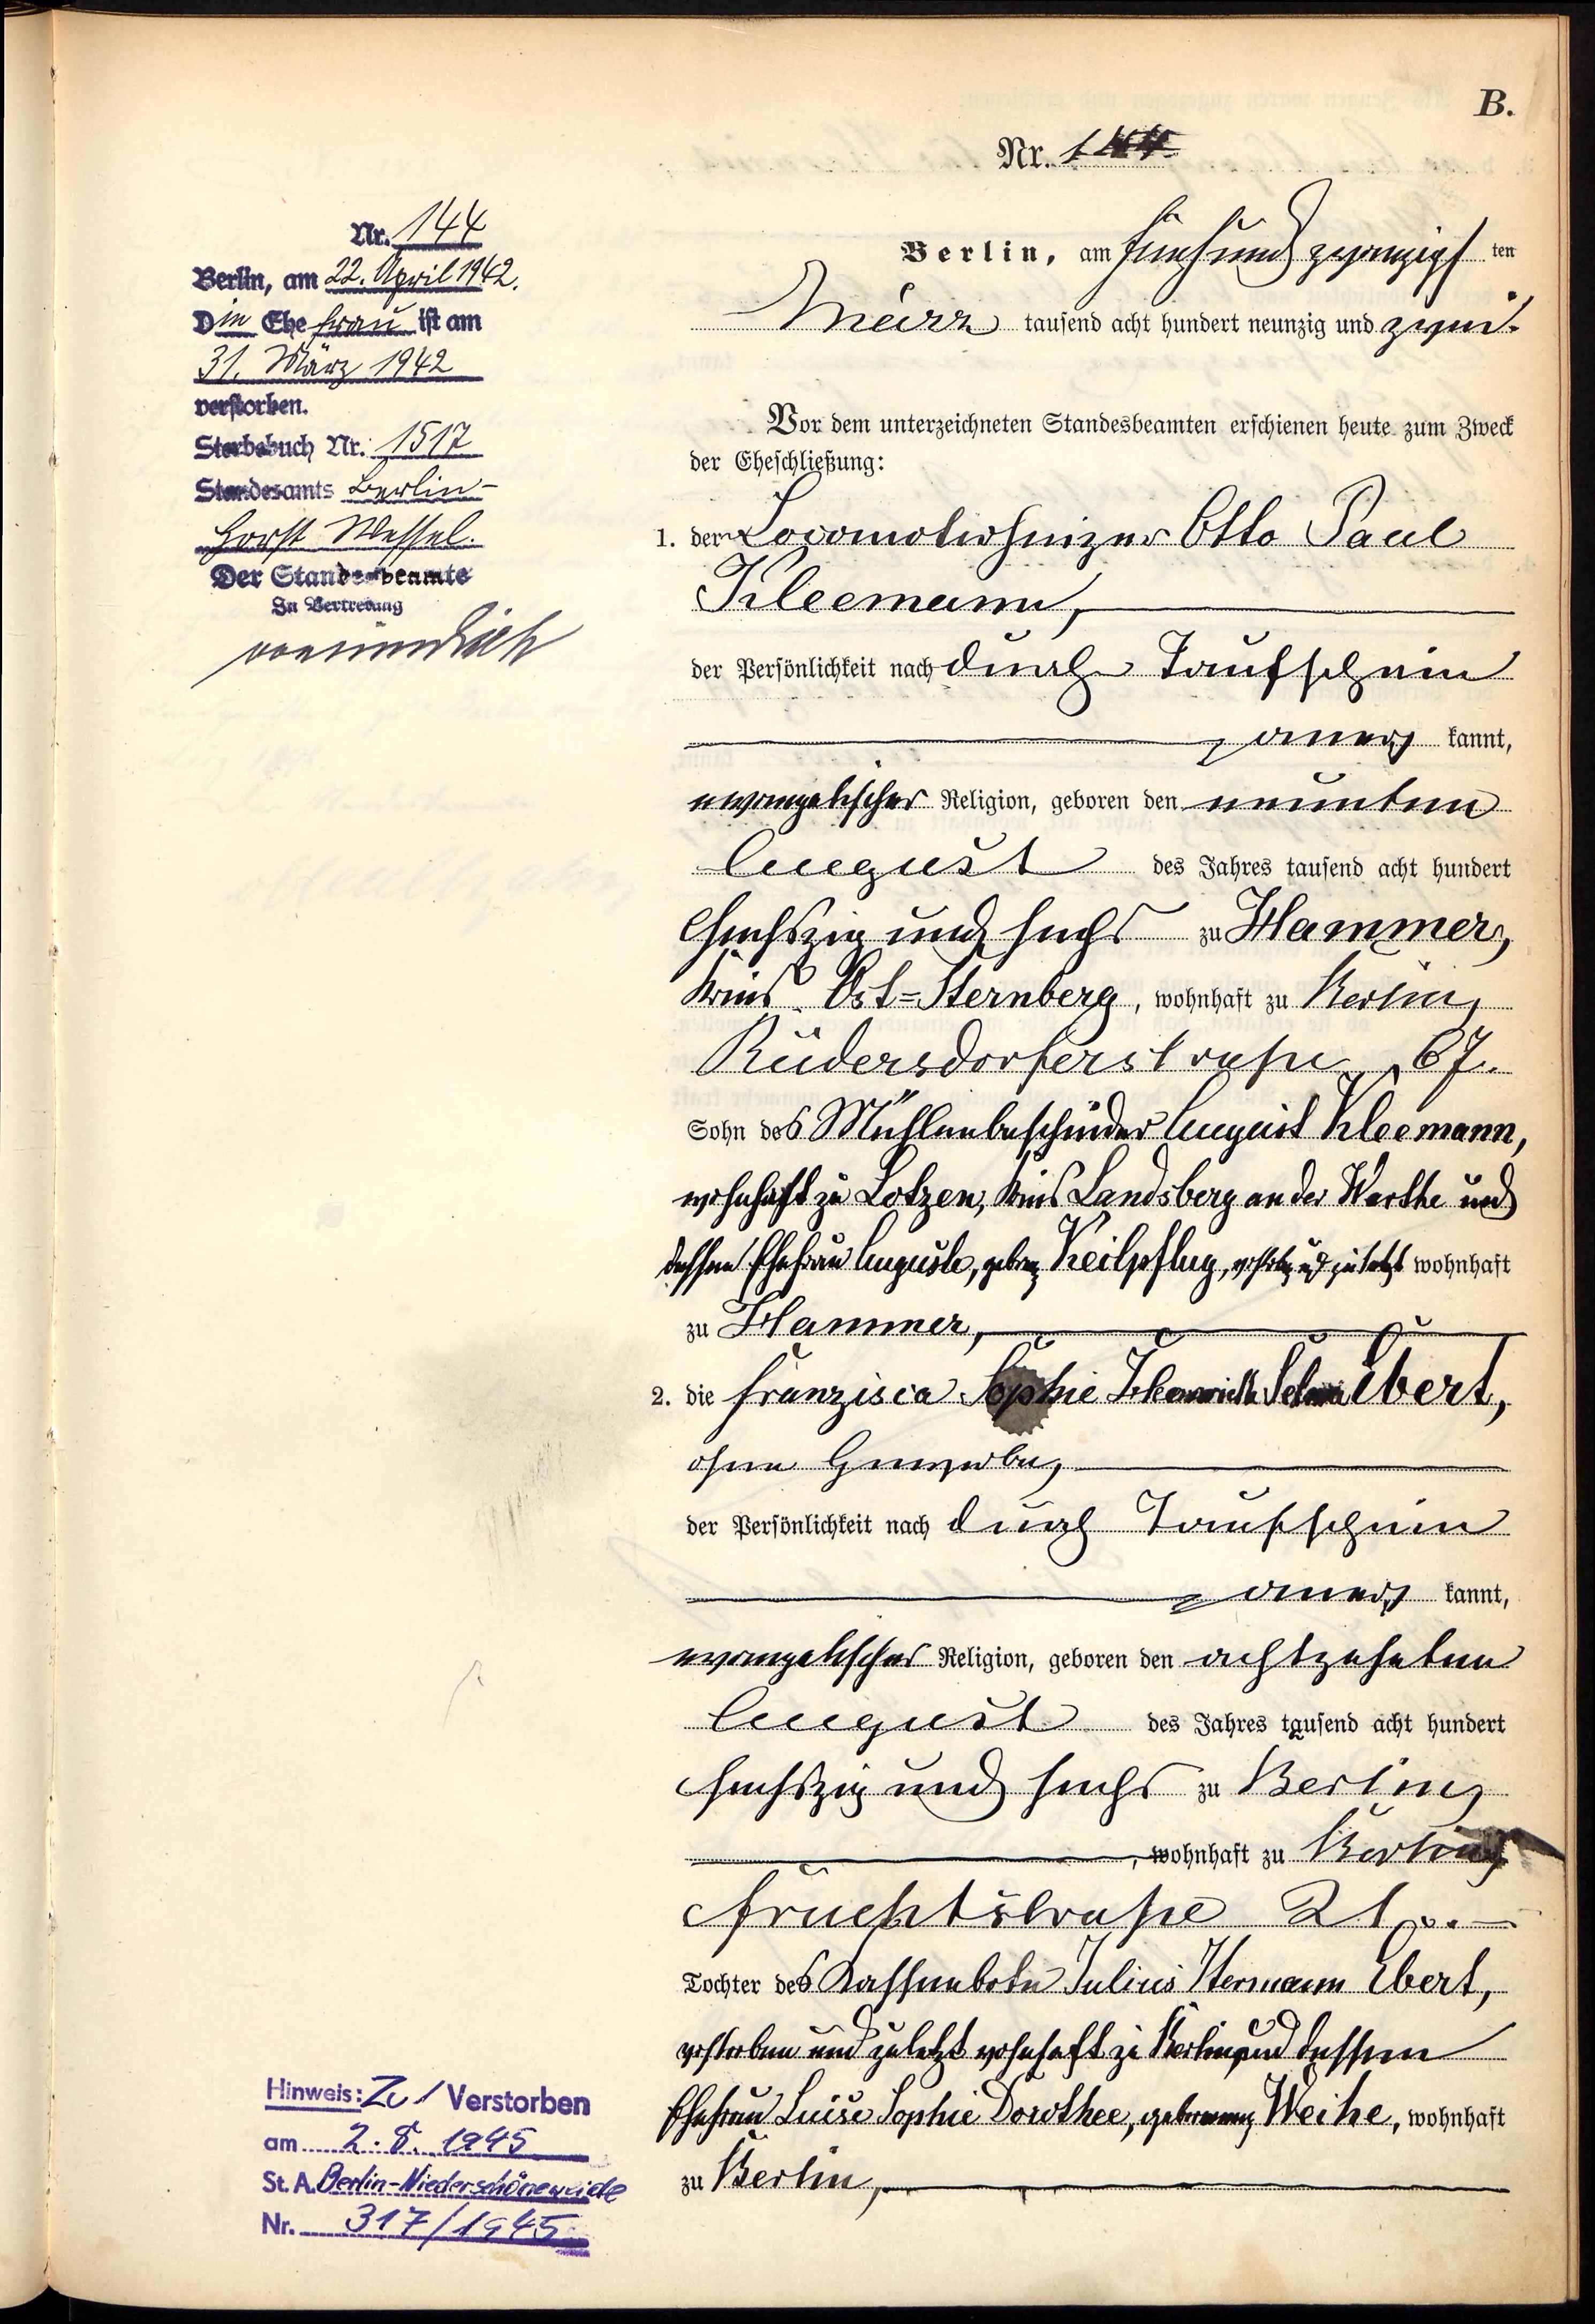 B.
Nr. 144.
Nr. 144
Berlin, am 22. April 1942.
Die Ehefrau ist am
31. März 1942
verstorben.
Sterbebuch Nr. 1517
Standesamts Berlin-
Horst Wessel.
Der Standesbeamte
In Vertretung
Berlin, am fünfundzwanzigsten
März tausend acht hundert neunzig und zwei.
Vor dem unterzeichneten Standesbeamten erschienen heute zum Zweck
der Eheschließung:
1. der Locomotivheizer Otto Paul
Kleemann,
der Persönlichkeit nach durch Taufschein
anerkannt,
evangelischer Religion, geboren den neunten
August des Jahres tausend acht hundert
sechszig und sechs zu Hammer,
Kreis Ost-Sternberg, wohnhaft zu Berlin,
Rüdersdorferstraße 67.
Sohn des Mühlenbescheider August Kleemann,
wohnhaft zu Lotzen, Kreis Landsberg an der Warthe und
dessen Ehefrau Auguste, geborenen Keilpflug, verstorben und zuletzt wohnhaft
zu Hammer,
2. die Franzisca Sophie Henriette Selma Ebert,
ohne Gewerbe,
der Persönlichkeit nach durch Taufschein
anerkannt,
evangelischer Religion, geboren den achtzehnten
August des Jahres tausend acht hundert
sechszig und sechs zu Berlin,
, wohnhaft zu Berlin,
Fruchtstraße 21.
Tochter des Kassenboten Julius Hermann Ebert,
verstorben und zuletzt wohnhaft zu Berlin und dessen
Ehefrau Luise Sophie Dorothee, geborenen Weihe, wohnhaft
zu Berlin,
Hinweis: Zu 1 Verstorben
am 2. 8. 1945
St. A. Berlin-Niederschöneweide
Nr. 317/1945